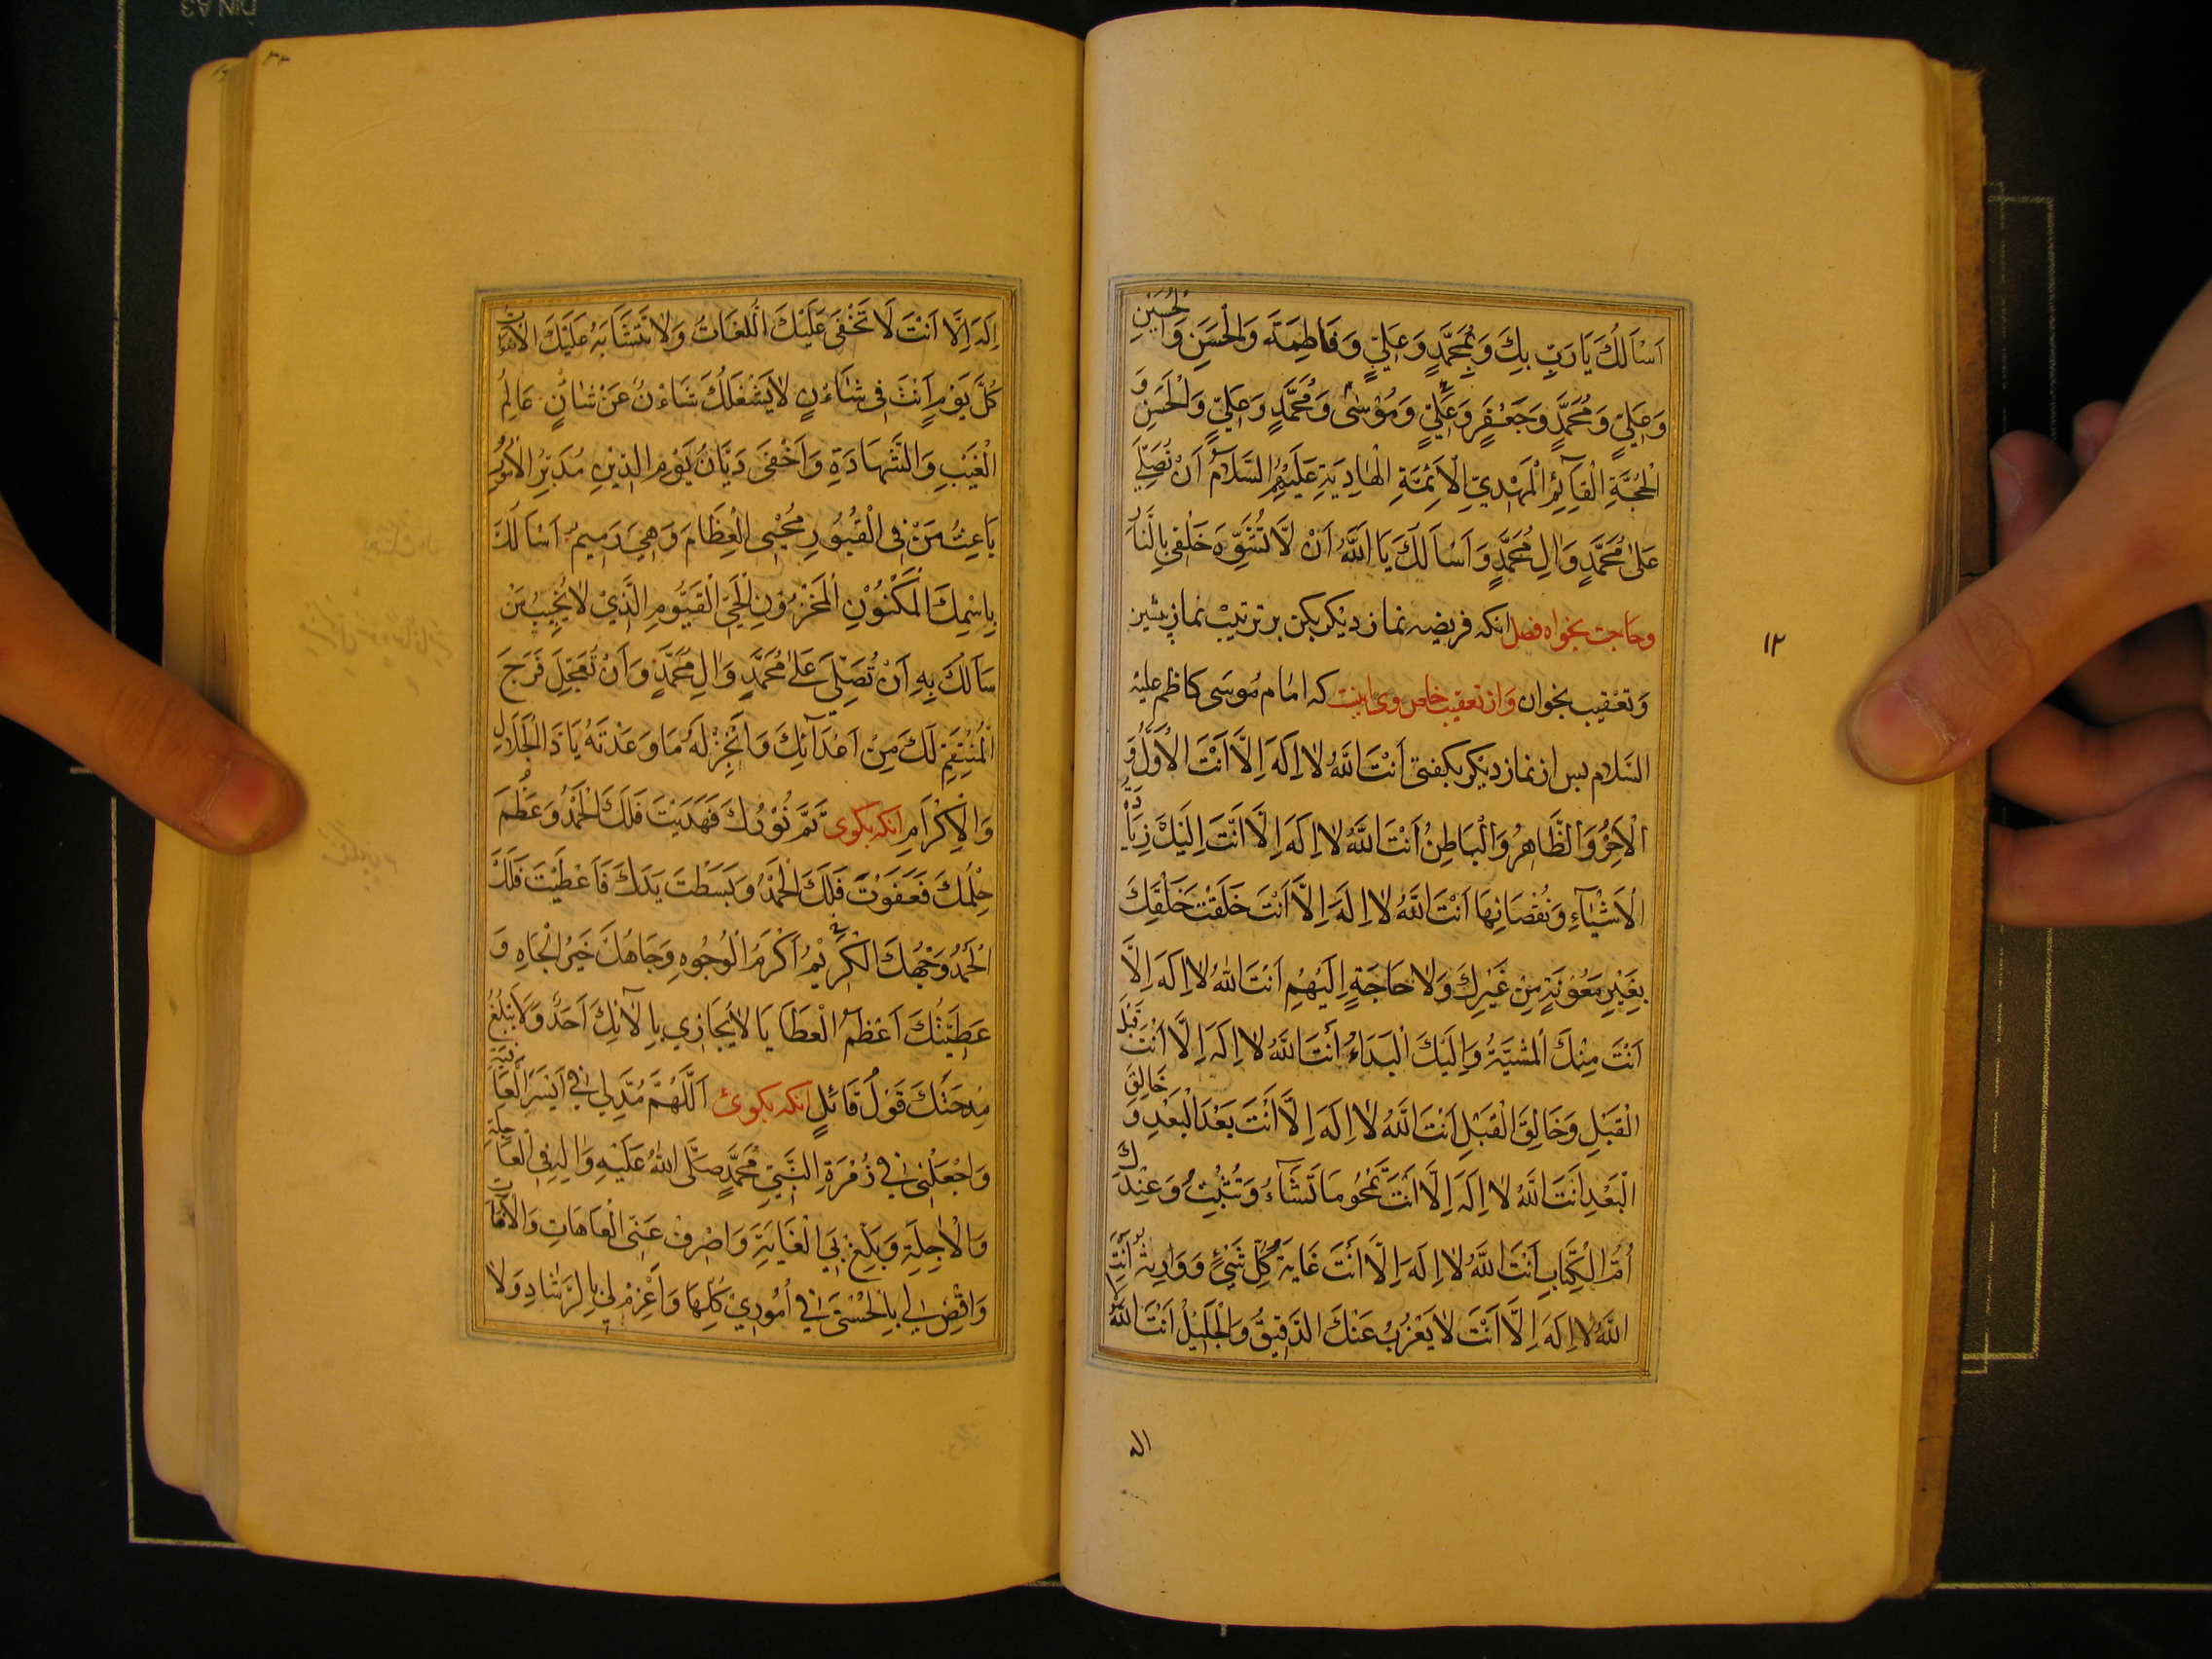 اَسْاَلُكَ يَا رَبِّ بِكَ وَبِمُحَمَّدٍ وَعَلِيٍّ وَفَاطِمَةَ وَالْحَسَنِ وَالْحُسَيْنِ
وَعَلِيٍّ وَمُحَمَّدٍ وَجَعْفَرٍ وَعَلِيٍّ وَمُوْسٰى وَمُحَمَّدٍ وَعَلِيٍّ وَالْحَسَنِ وَ
الْحُجَّةِ الْقَآئِمِ الْمَهْدِيِّ الْاَئِمَّةِ الْهَادِيَةِ عَلَيْهِمُ السَّلَامُ اَنْ تُصَلِّيَ
عَلٰى مُحَمَّدٍ وَاٰلِ مُحَمَّدٍ وَاَسْاَلُكَ يَا اَللّٰهُ اَنْ لَا تُشَوِّهَ خَلْقِي بِالنَّارِ
وحاجت بخواه فصل انكه فريضه نماز ديكر بكن بر ترتيب نماز پيشين
وَتعقيب بخوان وَاز تعقيب خاص وى اينست كه امام مُوسَى كاظم عليه
السّلام پس از نماز ديكر بكفتى اَنْتَ اللّٰهُ لَا اِلٰهَ اِلَّا اَنْتَ الْاَوَّلُ وَ
الْاٰخِرُ وَالظَّاهِرُ وَالْبَاطِنُ اَنْتَ اللّٰهُ لَا اِلٰهَ اِلَّا اَنْتَ اِلَيْكَ زِيَادَةُ
الْاَشْيَآءِ وَنُقْصَانُهَا اَنْتَ اللّٰهُ لَا اِلٰهَ اِلَّا اَنْتَ خَلَقْتَ خَلْقَكَ
بِغَيْرِ مَعُوْنَةٍ مِنْ غَيْرِكَ وَلَا حَاجَةٍ اِلَيْهِمْ اَنْتَ اللّٰهُ لَا اِلٰهَ اِلَّا
اَنْتَ مِنْكَ الْمَشِيَّةُ وَاِلَيْكَ الْبَدَاءُ اَنْتَ اللّٰهُ لَا اِلٰهَ اِلَّا اَنْتَ قَبْلَ
الْقَبْلِ وَخَالِقَ الْقَبْلِ اَنْتَ اللّٰهُ لَا اِلٰهَ اِلَّا اَنْتَ بَعْدَ الْبَعْدِ وَخَالِقَ
الْبَعْدِ اَنْتَ اللّٰهُ لَا اِلٰهَ اِلَّا اَنْتَ تَمْحُو مَا تَشَآءُ وَتُثْبِتُ وَعِنْدَكَ
اُمُّ الْكِتَابِ اَنْتَ اللّٰهُ لَا اِلٰهَ اِلَّا اَنْتَ غَايَةُ كُلِّ شَيْءٍ وَوَارِثُهُ اَنْتَ
اللّٰهُ لَا اِلٰهَ اِلَّا اَنْتَ لَا يَعْزُبُ عَنْكَ الدَّقِيقُ وَالْجَلِيْلُ اَنْتَ اللّٰهُ لا
اله
١٢
٣٣
اِلٰهَ اِلَّا اَنْتَ لَا تَخْفٰى عَلَيْكَ اللُّغَاتُ وَلَا تَتَشَابَهُ عَلَيْكَ الْاَصْوَاتُ
كُلَّ يَوْمٍ اَنْتَ فِى شَاْنٍ لَا يَشْغَلُكَ شَاْنٌ عَنْ شَاْنٍ عَالِمُ
الْغَيْبِ وَالشَّهَادَةِ وَاَخْفٰى دَيَّانُ يَوْمِ الدِّيْنِ مُدَبِّرُ الْاُمُوْرِ
بَاعِثُ مَنْ فِى الْقُبُوْرِ مُحْيِى الْعِظَامِ وَهِيَ رَمِيْمٌ اَسْاَلُكَ
بِاسْمِكَ الْمَكْنُوْنِ الْمَخْزُوْنِ الْحَيِّ الْقَيُّوْمِ الَّذِيْ لَا يُخَيِّبُ مَنْ
سَاَلَكَ بِهِ اَنْ تُصَلِّىَ عَلٰى مُحَمَّدٍ وَاٰلِ مُحَمَّدٍ وَاَنْ تُعَجِّلَ فَرَجَ
الْمُنْتَقِمِ لَكَ مِنْ اَعْدَآئِكَ وَاَنْجِزْ لَهُ مَا وَعَدْتَهُ يَا ذَا الْجَلَالِ
وَالْاِكْرَامِ انكه بكوى تَمَّ نُوْرُكَ فَهَدَيْتَ فَلَكَ الْحَمْدُ وَعَظُمَ
حِلْمُكَ فَعَفَوْتَ فَلَكَ الْحَمْدُ وَبَسَطْتَ يَدَكَ فَاَعْطَيْتَ فَلَكَ
الْحَمْدُ وَجْهُكَ الْكَرِيْمُ اَكْرَمُ الْوُجُوْهِ وَجَاهُكَ خَيْرُ الْجَاهِ وَ
عَطِيَّتُكَ اَعْظَمُ الْعَطَايَا لَا يُجَازِي بِاٰلَآئِكَ اَحَدٌ وَلَا يَبْلُغُ
مِدْحَتَكَ قَوْلُ قَائِلٍ انكه بكوئ اَللّٰهُمَّ مُدَّ لِي فِي اَيْسَرِ الْعَافِيَةِ
وَاجْعَلْنِي فِي زُمْرَةِ النَّبِيِّ مُحَمَّدٍ صَلَّى اللّٰهُ عَلَيْهِ وَاٰلِهِ فِي الْعَاجِلَةِ
وَالْاٰجِلَةِ وَبَلِّغْ بِيَ الْغَايَةَ وَاصْرِفْ عَنِّى الْعَاهَاتِ وَالْاٰفَاتِ
وَاقْضِ لِي بِالْحُسْنٰى فِي اُمُوْرِيْ كُلِّهَا وَاعْزِمْ لِي بِالرَّشَادِ وَلَا